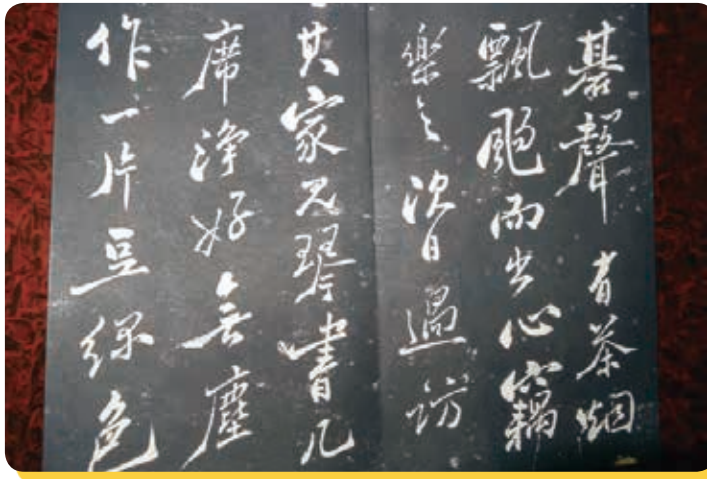 碁聲有茶烟
飄颺而出心竊
樂之次日過訪
其家見琴書几
席淨好無塵
作一片豆綠色